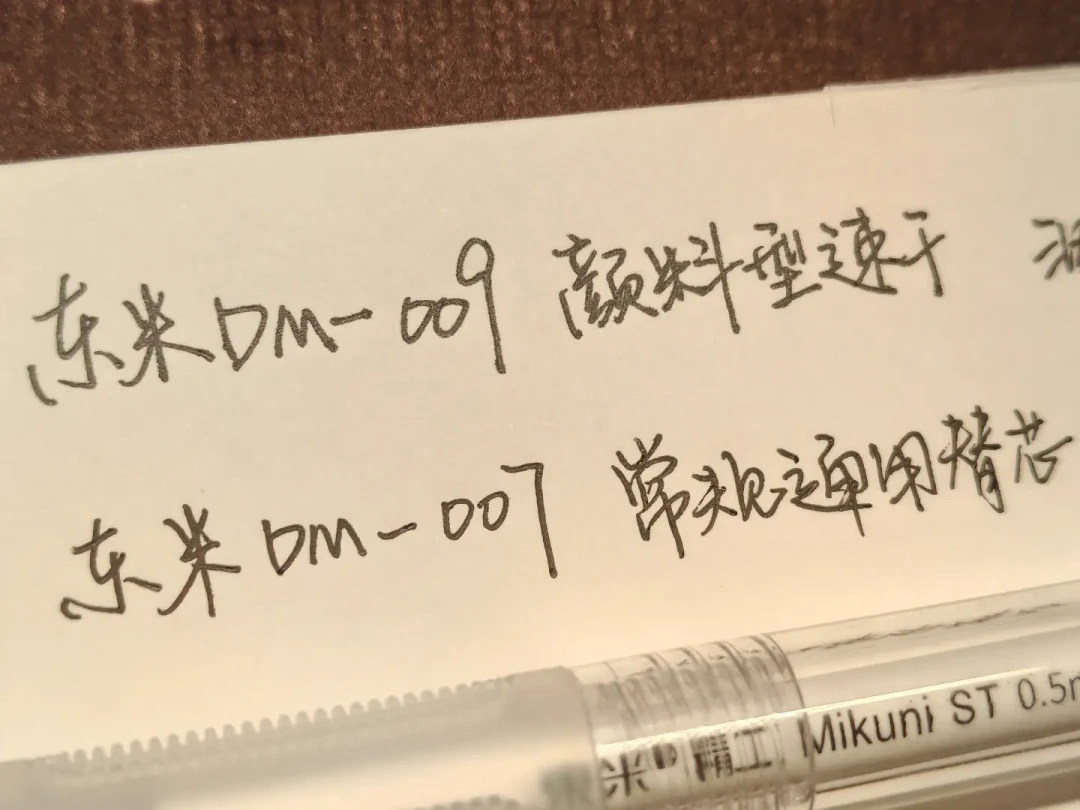 东米DM-009 颜料型速干
东米DM-007 常规通用替芯
米 精工 Mikuni ST 0.5